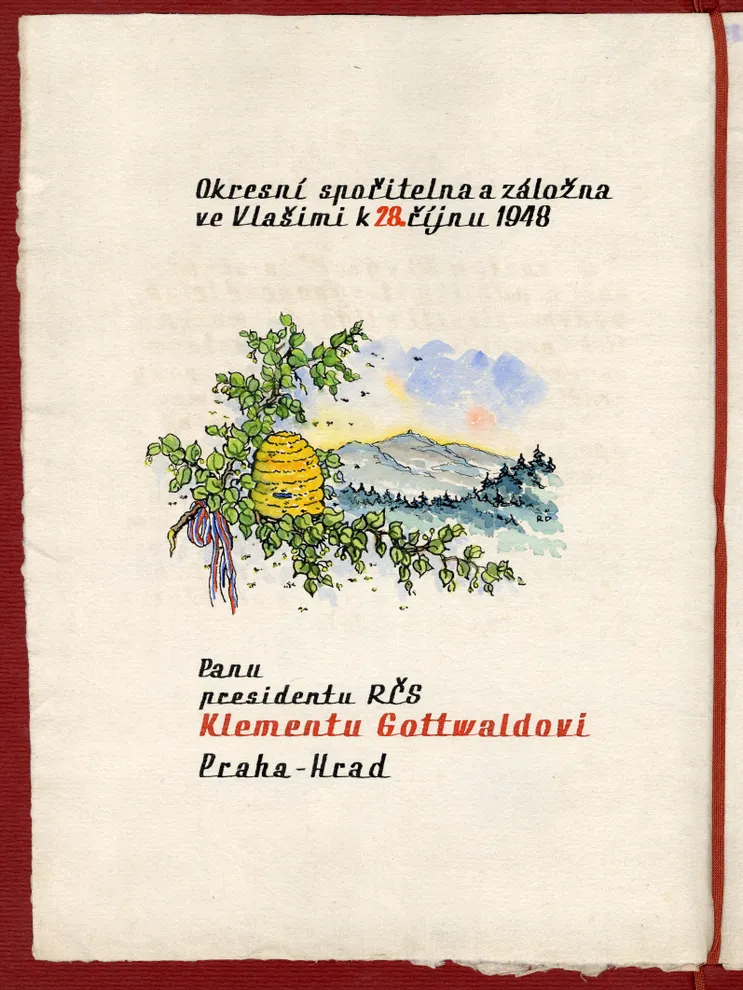 Okresní spořitelna a záložna
ve Vlašimi k 28. říjnu 1948
Panu
presidentu RČS
Klementu Gottwaldovi
Praha-Hrad